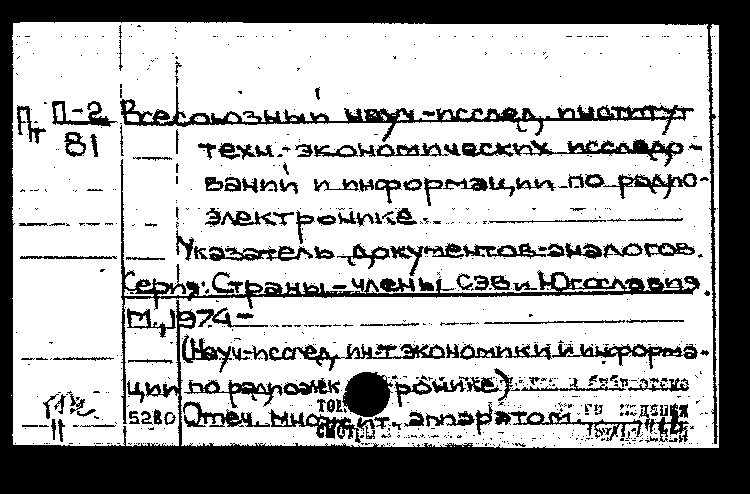 Пт П-2 Всесоюзный науч.-исслед. институт
81 техн.-экономических исследо-
ваний и информации по радио-
электронике.
Указатель документов-аналогов.
Серия: Страны-члены СЭВ и Югославия.
М., 1974-
(Науч-исслед. ин-т экономики и информа-
ции по радиоэлек ронике) и библиотеке
5280 Отеч. множит. аппаратом. издания